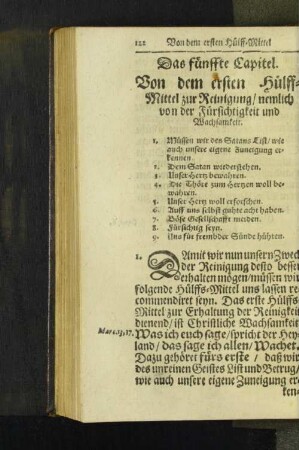 122 Von dem ersten Hülff-Mittel
Das fünffte Capitel.
Von dem ersten Hülff-
Mittel zur Reinigung / nemlich
von der Fürsichtigkeit und
Wachsamkeit.
1. Müssen wir den Satans List / wie
auch unsere eigene Zuneigung er-
kennen.
2. Dem Satan wiederstehen.
3. Unser Hertz bewahren.
4. Die Thöre zum Hertzen woll be-
wahren.
5. Unser Hertz woll erforschen.
6. Auff uns selbst guhte acht haben.
7. Böse Gesellschafft meiden.
8. Fürsichtig seyn.
9. Uns für frembder Sünde hühten.
1. Damit wir nun unsern Zweck
der Reinigung desto besser
erhalten mögen / müssen wir
folgende Hülffs-Mittel uns lassen re-
commendiret seyn. Das erste Hülffs-
Mittel zur Erhaltung der Reinigkeit
dienend / ist Christliche Wachsamkeit
Marc. 13, 37. Was ich euch sage / spricht der Hey-
land / das sage ich allen / Wachet.
Dazu gehöret fürs erste / daß wir
des unreinen Geistes List und Betrug /
wie auch unsere eigene Zuneigung er-
ken-